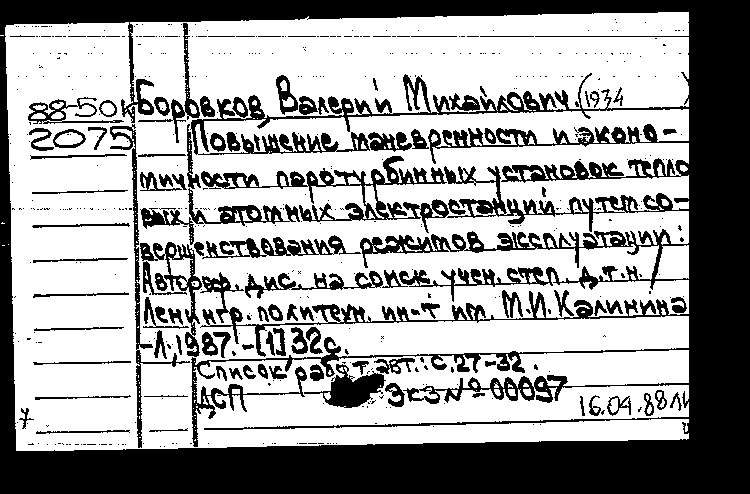 88-50к Боровков, Валерий Михайлович. (1934 )
2075 Повышение маневренности и эконо-
мичности паротурбинных установок тепло
вых и атомных электростанций путем со-
вершенствования режимов эксплуатации:
Автореф. дис. на соиск. учен. степ. д.т.н. /
Ленингр. политехн. ин-т им. М.И. Калинина
-Л., 1987. -[1] 32с.
Список работ авт.: с. 27-32.
ДСП Экз № 00097
7 16.04.88